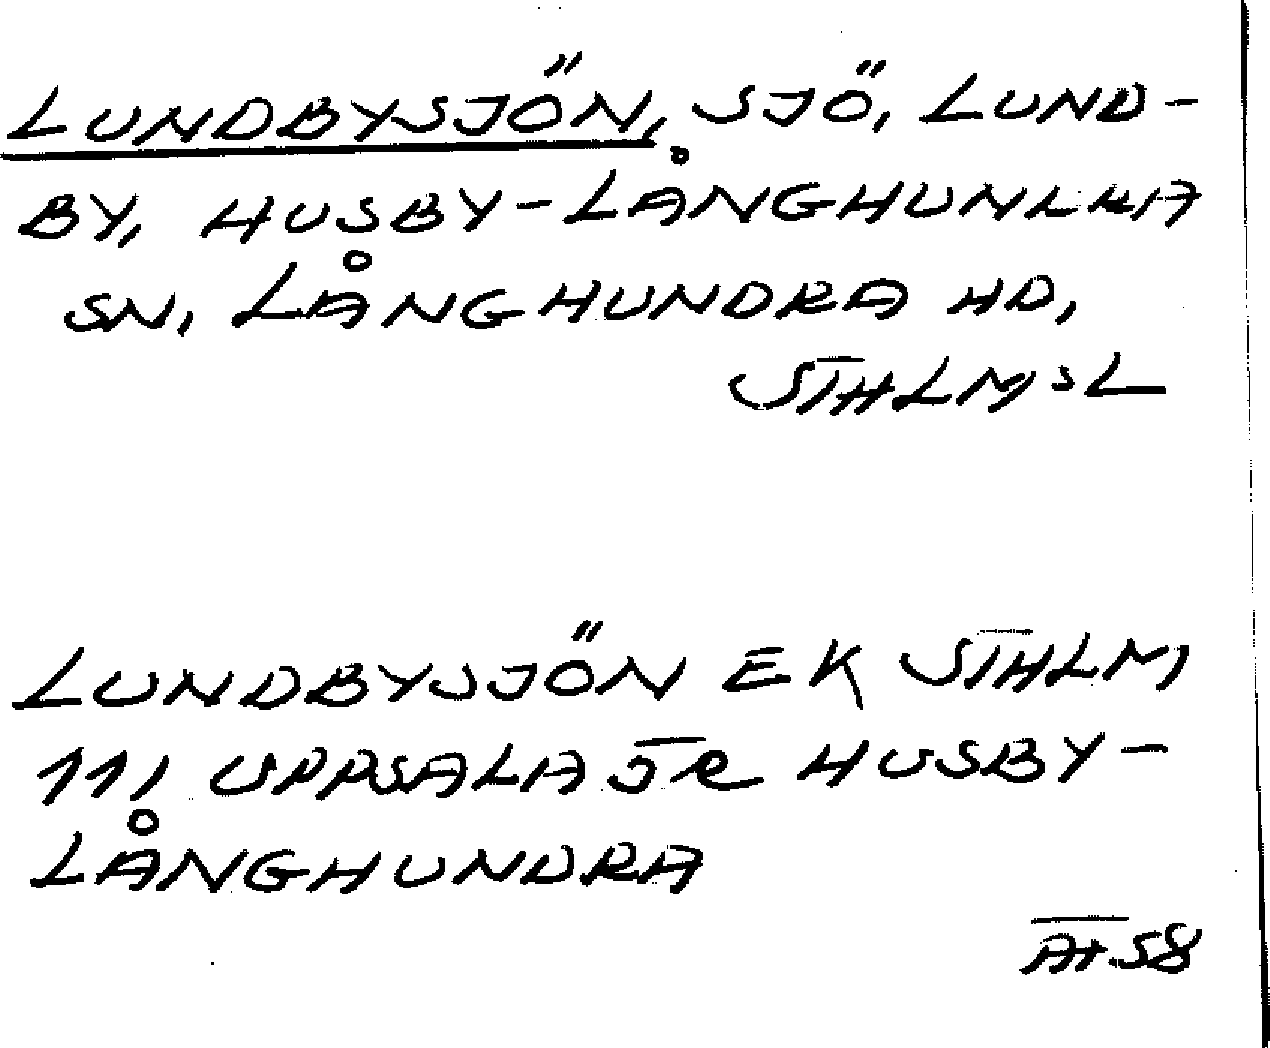 LUNDBYSJÖN, SJÖ, LUND-
BY, HUSBY-LÅNGHUNDRA
SN, LÅNGHUNDRA HD,
STHLMsL
LUNDBYSJÖN EK STHLM
111 UPPSALA TR HUSBY-
LÅNGHUNDRA
AT.58